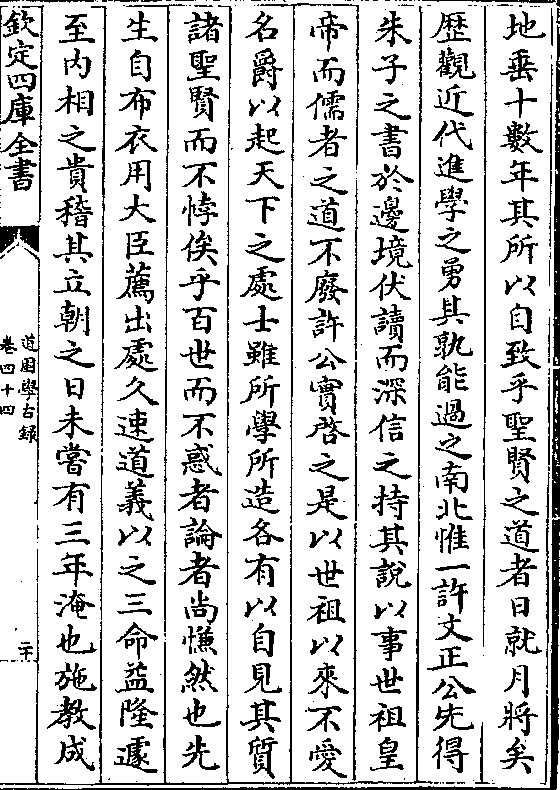 地垂十數年其所以自致乎聖賢之道者日就月將矣
歴觀近代進學之勇其孰能過之南北惟一許文正公先得
朱子之書於邊境伏讀而深信之持其說以事世祖皇
帝而儒者之道不廢許公實啓之是以世祖以來不愛
名爵以起天下之處士雖所學所造各有以自見其質
諸聖賢而不悖俟乎百世而不惑者論者尚慊然也先
生自布衣用大臣薦出處久速道義以之三命益隆遽
至内相之貴稽其立朝之日未嘗有三年淹也施教成
欽定四庫全書
道園學古錄
卷四十四
二十